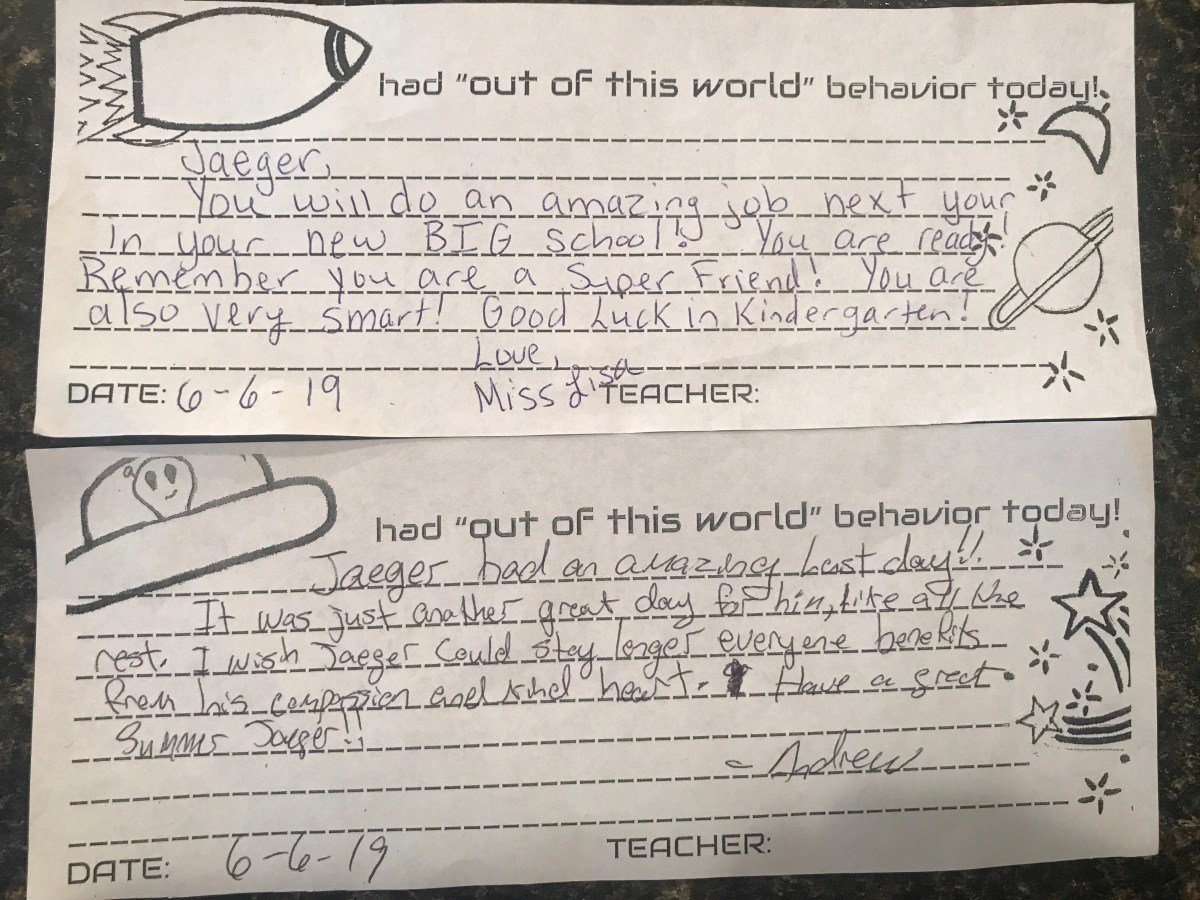 had "out of this world" behavior today!
Jaeger,
You will do an amazing job next your
In your new BIG school! You are ready!
Remember you are a Super Friend! You are
also very smart! Good Luck in Kindergarten!
Love,
Miss Lisa
DATE: 6-6-19 TEACHER:
had "out of this world" behavior today!
Jaeger had an amazing Last day!!
It was just another great day for him, like all the
rest. I wish Jaeger Could stay longer everyone benefits
from his compassion and kind heart. Have a great
Summer Jaeger!!
- Andrew
DATE: 6-6-19 TEACHER: